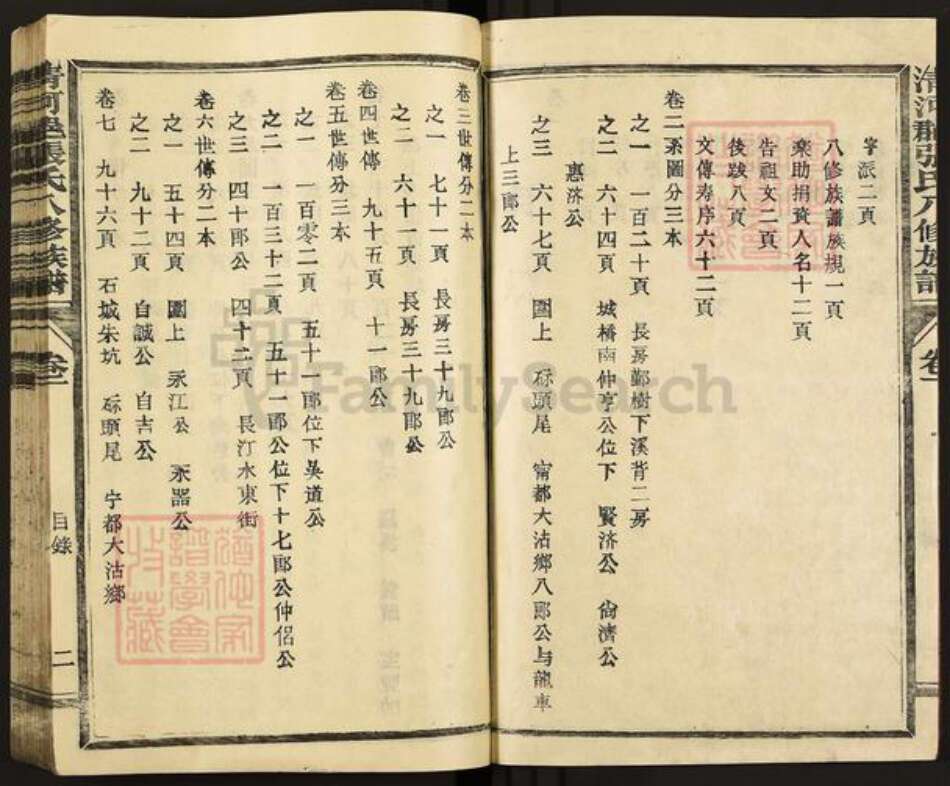 字派二頁
八修族譜族規一頁
樂助捐資人名十二頁
告祖文二頁
後跋八頁
文傳寿序六十二頁
卷二系圖分三本
之一 一百二十頁 長房鄞樹下溪背二房
之二 六十四頁 城橋南仲亨公位下 賢济公 尙濟公
惠济公
之三 六十七頁 圖上 磜頭尾 甯都大沽鄉八郞公与龍車
上三郞公
卷三世傳分二本
之一 七十一頁 長房三十九郞公
之二 六十一頁 長房三十九郞公
卷四世傳 九十五頁 十一郞公
卷五世傳分三本
之一 一百零二頁 五十一郞位下吳道公
之二 一百三十二頁 五十一郞公位下十七郞公仲侣公
之三 四十郞公 四十二頁 長汀水東街
卷六世傳分二本
之一 五十四頁 圖上 永江公 永器公
之二 九十二頁 自誠公 自吉公
卷七 九十六頁 石城朱坑 磜頭尾 宁都大沽鄉
清河郡張氏八修族譜 卷一 目錄 二
清河郡張氏八修族譜 卷一
FamilySearch